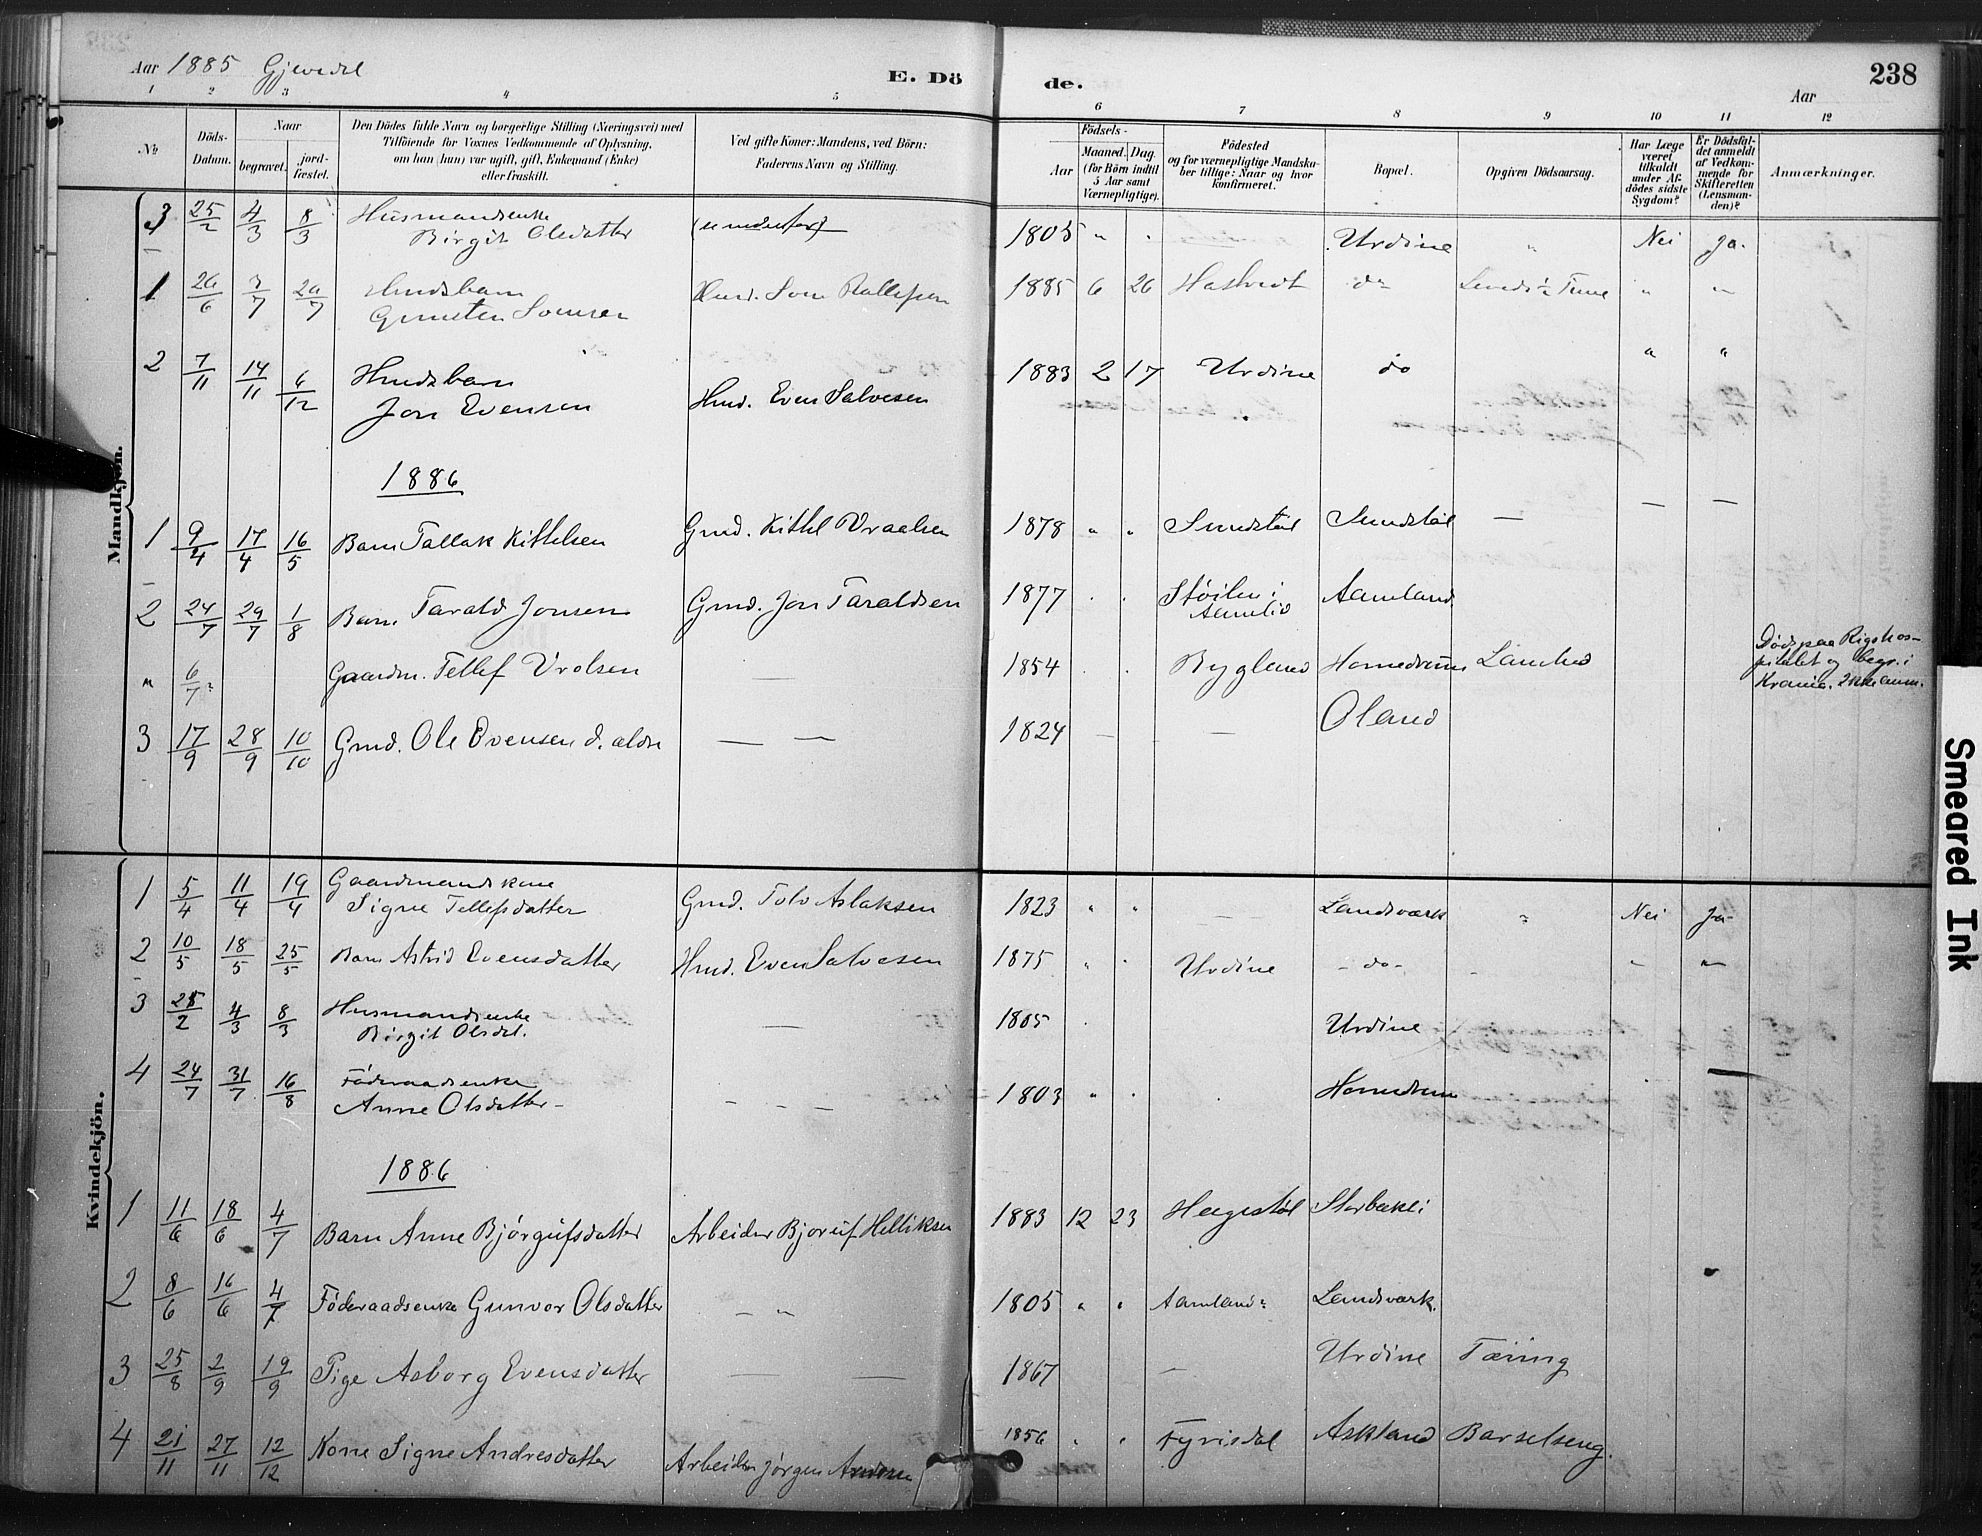 Aar 1885 Gjevedal E. Dö de. Aar 238
1 2 3 4 5 6 7 8 9 10 11 12
No
Döds-Datum.
Naar begravet. jord-fæstet.
Den Dödes fulde Navn og borgerlige Stilling (Næringsvei) med
Tilföiende for Voxnes Vedkommende af Oplysning,
om han (hun) var ugift, gift, Enkemand (Enke)
eller fraskilt.
Ved gifte Koner: Mandens, ved Börn:
Faderens Navn og Stilling.
Födsels-
Aar Maaned. Dag.
(for Börn indtil
5 Aar samt
Værnepligtige).
Födested
og for værnepligtige Mandska-
ber tillige: Naar og hvor
konfirmeret.
Bopæl.
Opgiven Dödsaarsag.
Har Læge
været
tilkaldt
under Af-
dödes sidste
Sygdom?
Er Dödsfal-
det anmeldt
af Vedkom-
mende for
Skifteretten
(Lensman-
den)?
Anmærkninger.
Mandkjön.
3 25/2 4/3 8/3 Husmandsenke
Birgit Olsdatter 1805 " " Urdine " Nei Ja.
1 26/6 7/7 20/7 Hmdsbarn
1885 6 26 do " "
2 7/11 14/11 6/12 Hmdsbarn
Jon Evensen Hmd. Even Salvesen 1883 2 17 Urdine do " "
1886
1 9/4 17/4 16/5 Barn Tallak Kittelsen Gmd. Kittel Vraalsen 1878 " " Smidstøl Smidstøl — — —
2 24/7 29/7 1/8 Barn Tarald Jonsen Gmd. Jon Taraldsen 1877 " " Støilen i
Aamlid Aamland
" 6/7 Gaardm. Tellef Vrolsen — 1854 Bygland
Død paa Rigshos-
pitalet og begr. i
3 17/9 28/9 10/10 Gmd. Ole Evensen d. ældre — — 1824 — — Oland
Kvindekjön.
1 5/4 11/4 19/4 Gaardmandskone
Signe Tellefsdatter Gmd. Tolv Aslaksen 1823 " " — Landsværk " Nei Ja
2 10/5 18/5 25/5 Barn Astrid Evensdatter Hmd. Even Salvesen 1875 " " Urdine - do - " "
3 25/2 4/3 8/3 Husmandsenke
Birgit Olsdat. — 1805 Urdine
4 24/7 31/7 16/8 Föderaadsenke
Anne Olsdatter - - - - 1803 " "
1886
1 11/6 18/6 4/7 Barn Anne Bjørgufsdatter Arbeider Helliksen 1883 12 23 Hegestøl Storbækli
2 8/6 16/6 4/7 Föderaadsenke Gunvor Olsdatter - " 1805 " " Aamland Landsværk.
3 25/8 2/9 19/9 Pige Asborg Evensdatter — — 1867 — Urdine Tæring
4 21/11 27/11 12/12 Kone Signe Andresdatter Arbeider Jørgen 1856 " " Fyrisdal Askland Barselseng.
Smeared Ink